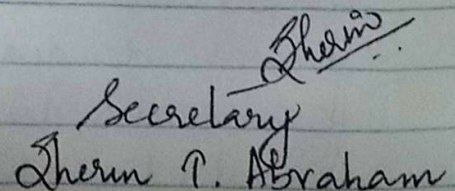 Sherin
Secretary
Sherin T. Abraham